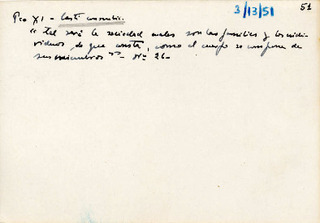 3/13/51
51
Pio XI - Casti connubii.
"tal será la sociedad cuales son las familias y los indi-
viduos, de que consta, como el cuerpo se compone de
sus miembros" - Nº 26-